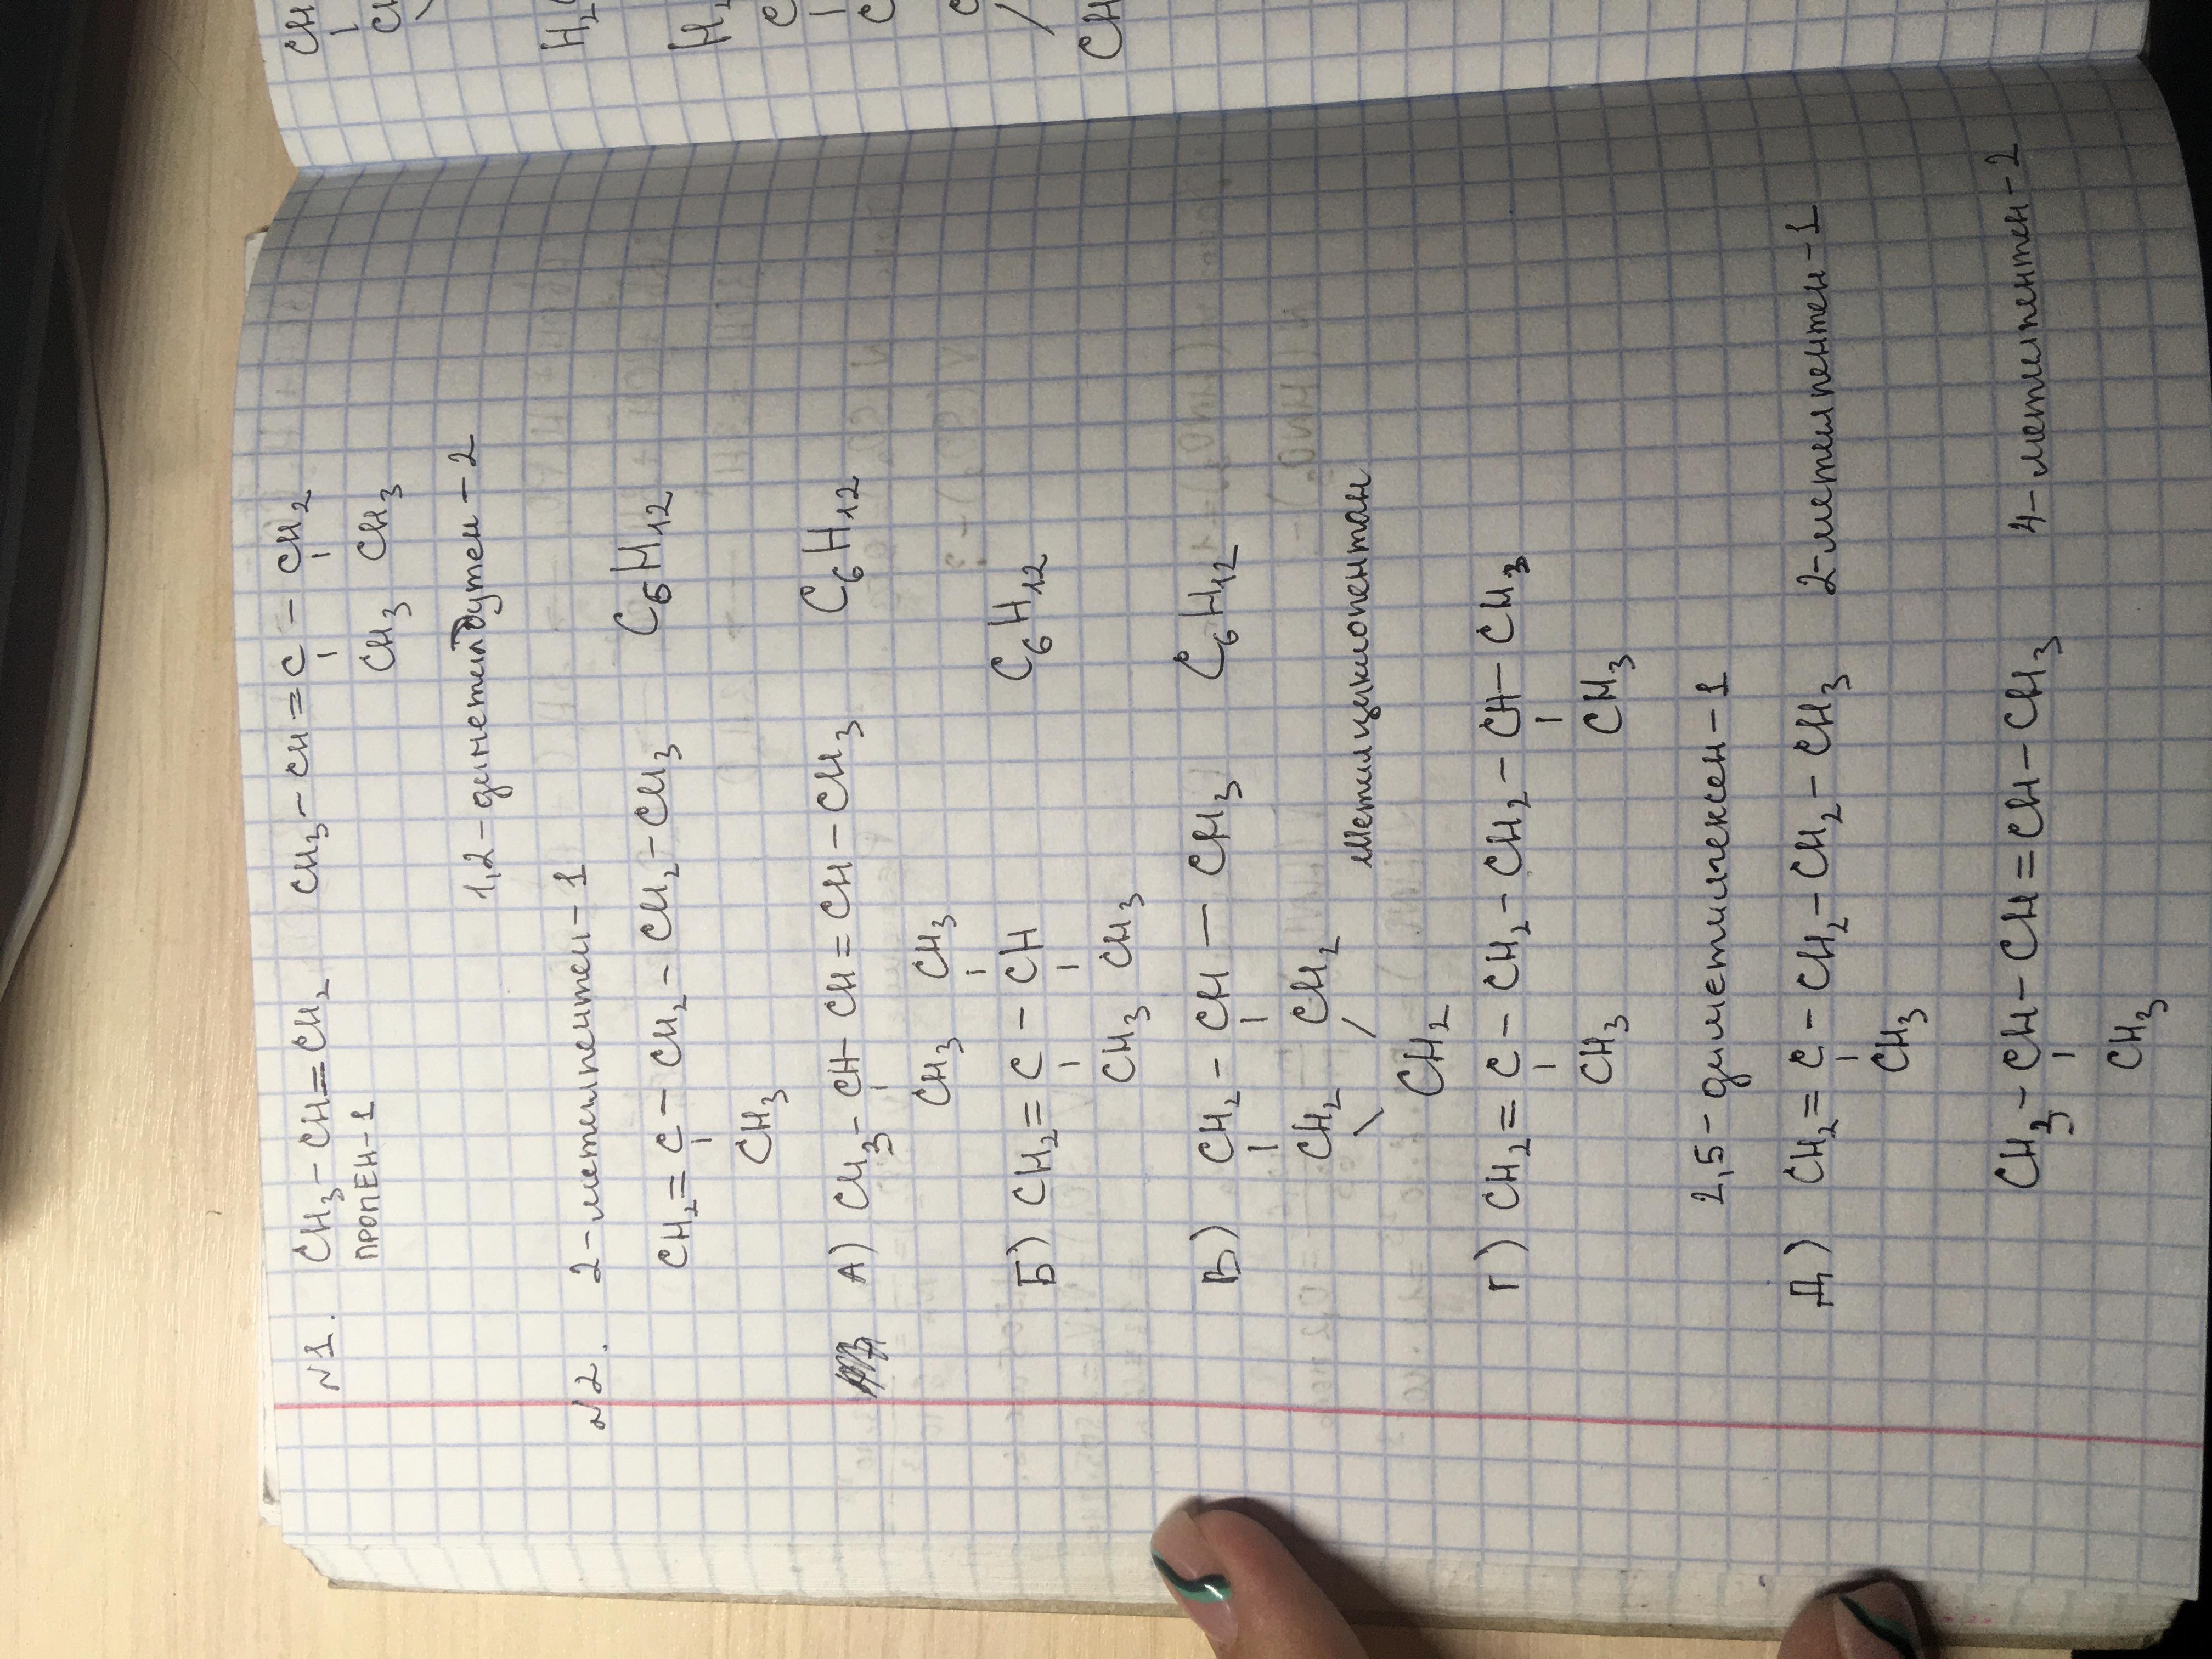 N1. CH₃-CH=CH₂ CH₃-CH=C-CH₂
ПРОПЕН-1 CH₃ CH₃
1,2-диметилбутен-2
N2. 2-метилпентен-1
CH₂=C-CH₂-CH₂-CH₃ C₆H₁₂
CH₃
А) CH₃-CH-CH=CH-CH₃ C₆H₁₂
CH₃ CH₃
Б) CH₂=C-CH C₆H₁₂
CH₃ CH₃
В) CH₂-CH-CH₃ C₆H₁₂
CH₂ CH₂
CH₂ метилциклопентан
Г) CH₂=C-CH₂-CH₂-CH-CH₃
CH₃ CH₃
2,5-диметилгексен-1
Д) CH₂=C-CH₂-CH₂-CH₃ 2-метилпентен-1
CH₃
CH₃-CH-CH=CH-CH₃ 4-метилпентен-2
CH₃